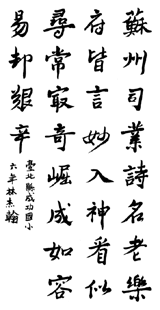 蘇州司業詩名老樂
府皆言妙入神看似
尋常㝡奇崛成如容
易却艱辛
臺北縣成功國小
六年林杰翰